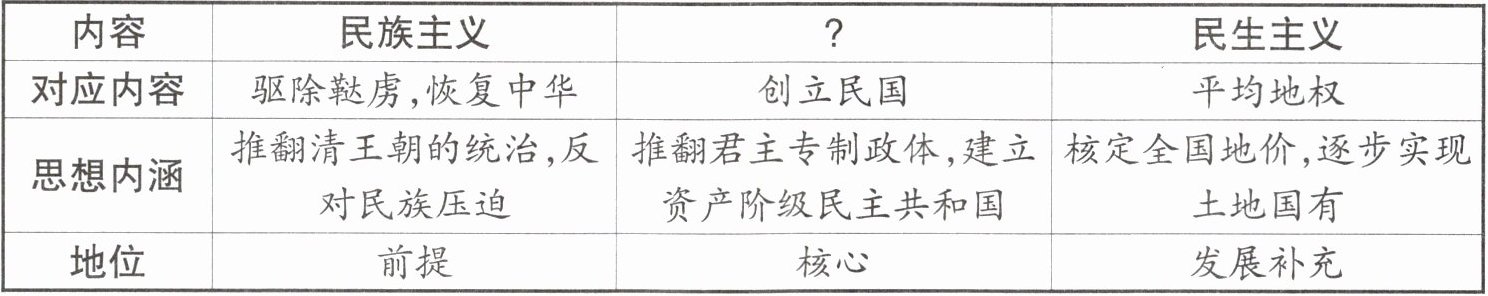 内容 民族主义 ? 民生主义
对应内容 驱除鞑虏,恢复中华 创立民国 平均地权
思想内涵 推翻清王朝的统治,反对民族压迫 推翻君主专制政体,建立资产阶级民主共和国 核定全国地价,逐步实现土地国有
地位 前提 核心 发展补充